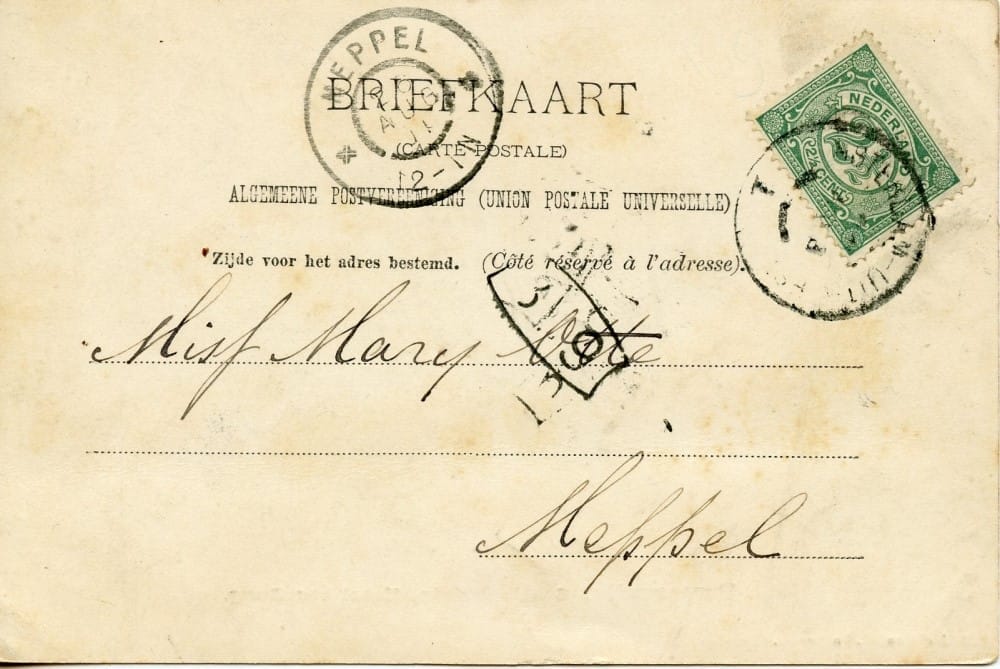 MEPPEL
AUG
12-1N
BRIEFKAART
(CARTE POSTALE)
ALGEMEENE POSTVEREENIGING (UNION POSTALE UNIVERSELLE)
Zijde voor het adres bestemd. (Côté réservé à l'adresse).
NEDERLAND
2½ CENT
Miss Mary
Meppel